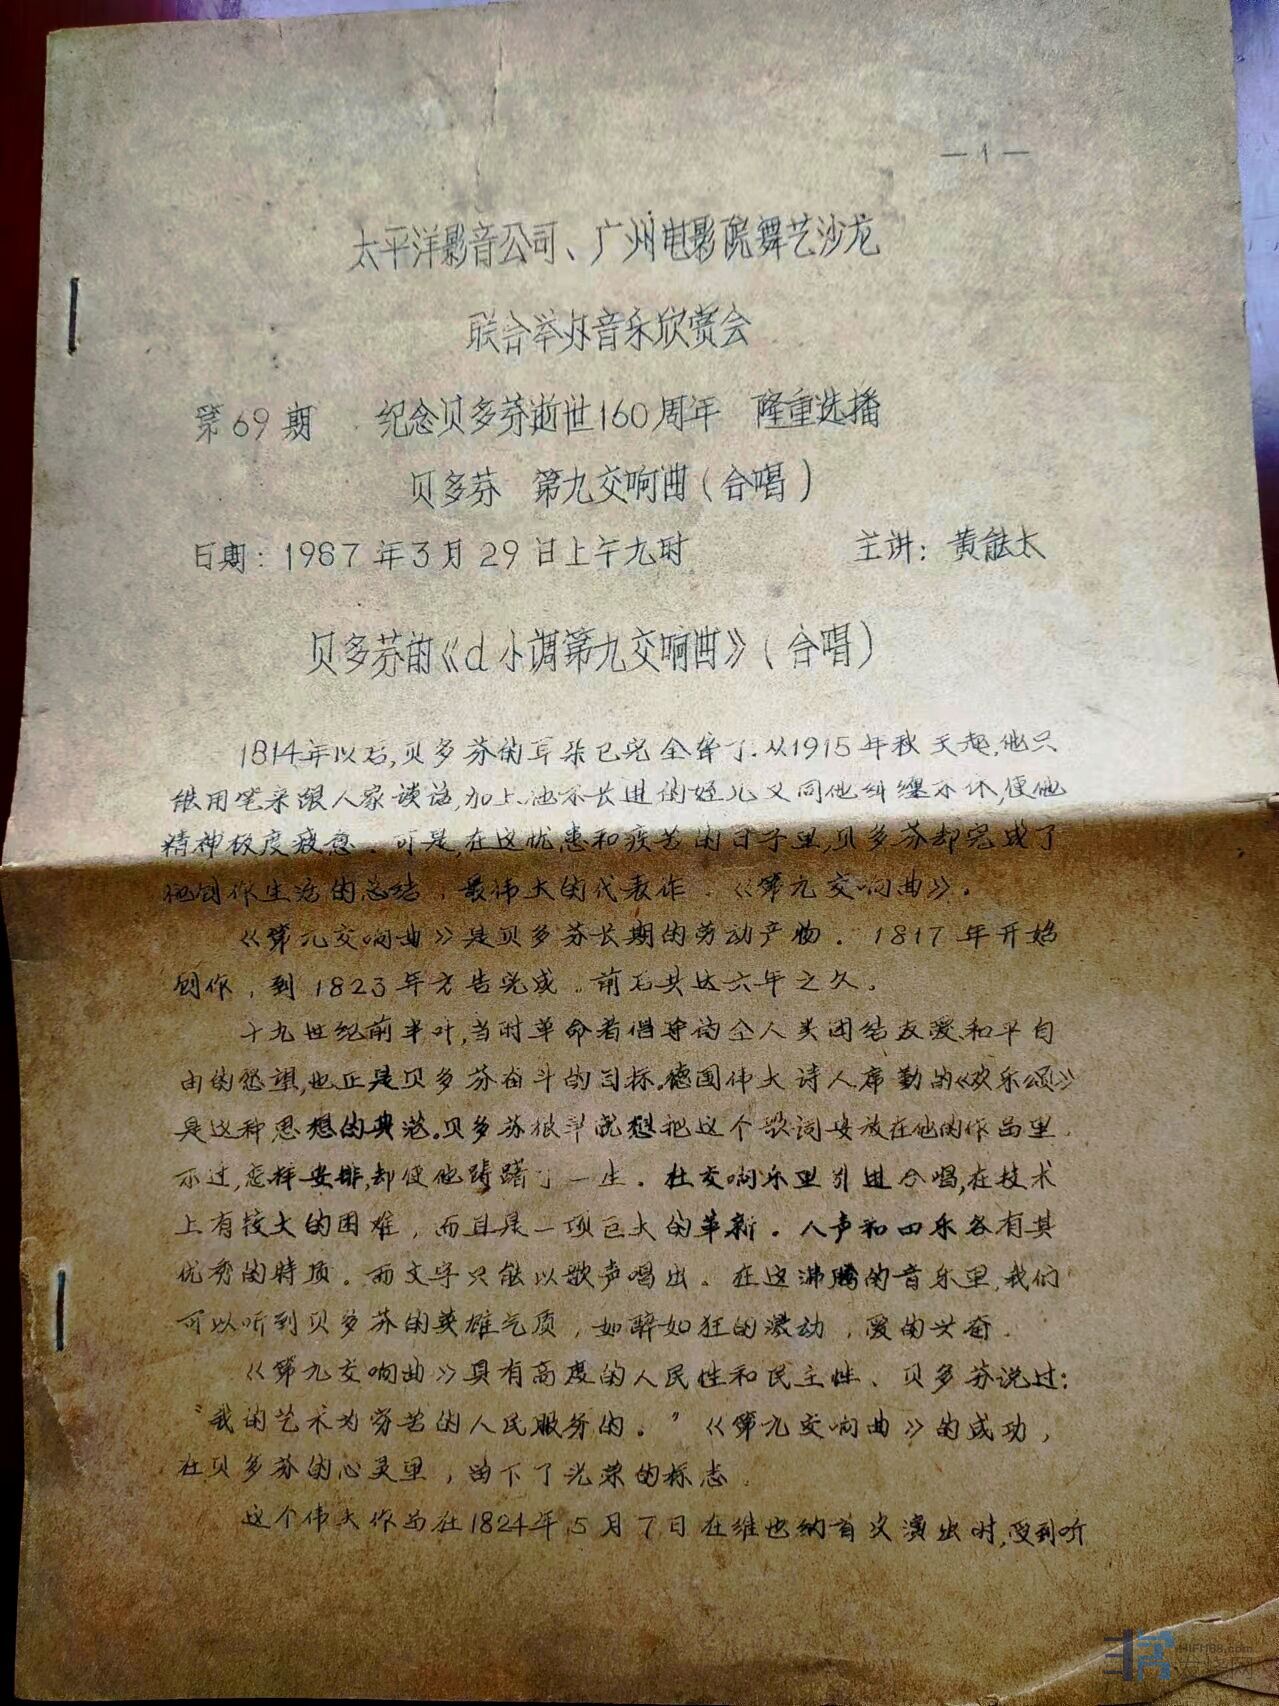 — 1 —
太平洋影音公司、广州电影院舞艺沙龙
联合举办音乐欣赏会
第69期 纪念贝多芬逝世160周年 隆重选播
贝多芬 第九交响曲(合唱)
日期:1987年3月29日上午九时 主讲:黄能太
贝多芬的《d小调第九交响曲》(合唱)
1814年以后,贝多芬的耳朵已完全聋了.从1915年秋天起,他只
能用笔来跟人家谈话,加上他不长进的侄儿又同他纠缠不休,使他
精神极度疲惫.可是,在这忧患和疾苦的日子里,贝多芬却完成了
他创作生活的总结,最伟大的代表作.《第九交响曲》.
《第九交响曲》是贝多芬长期的劳动产物.1817年开始
创作,到1823年方告完成.前后共达六年之久.
十九世纪前半叶,当时革命者倡导的全人类团结友爱、和平自
由的愿望,也正是贝多芬奋斗的目标.德国伟大诗人席勒的《欢乐颂》
是这种思想的典范.贝多芬很早就想把这个歌词安放在他的作品里.
不过,怎样安排,却使他踌躇了一生.在交响乐里引进合唱,在技术
上有较大的困难,而且是一项巨大的革新.人声和四乐各有其
优秀的特质.而文字只能以歌声唱出.在这沸腾的音乐里,我们
可以听到贝多芬的英雄气质,如醉如狂的激动,爱的兴奋.
《第九交响曲》具有高度的人民性和民主性、贝多芬说过:
“我的艺术为穷苦的人民服务的.”《第九交响曲》的成功,
在贝多芬的心灵里,留下了光荣的标志.
这个伟大作品在1824年5月7日在维也纳首次演出时,受到听
HIFM88.com